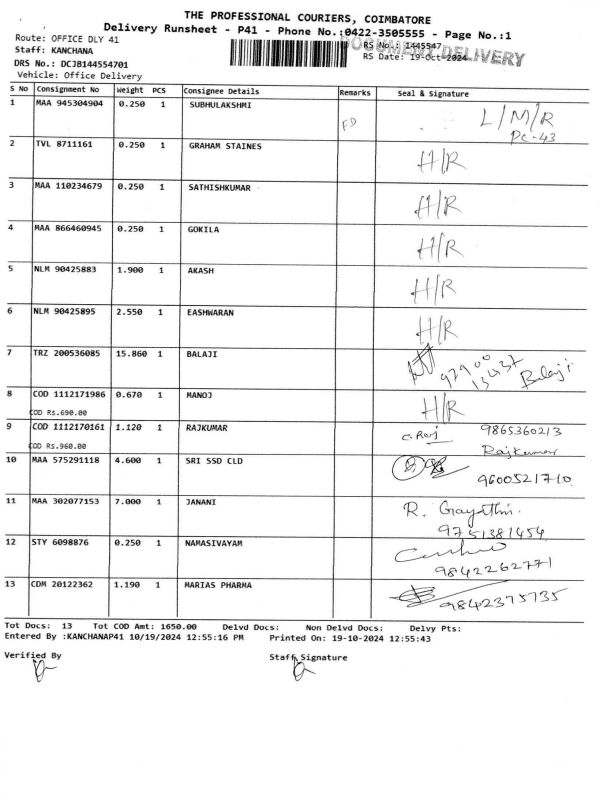 THE PROFESSIONAL COURIERS, COIMBATORE
Delivery Runsheet - P41 - Phone No.:0422-3505555 - Page No.:1
DOCUMENT DELIVERY
Route: OFFICE DLY 41 RS No.: 1445547
Staff: KANCHANA RS Date: 19-Oct-2024
DRS No.: DCJB144554701
Vehicle: Office Delivery
S No Consignment No Weight PCS Consignee Details Remarks Seal & Signature
1 MAA 945304904 0.250 1 SUBHULAKSHMI FD L/M/R
PC-43
2 TVL 8711161 0.250 1 GRAHAM STAINES H/R
3 MAA 110234679 0.250 1 SATHISHKUMAR H/R
4 MAA 866460945 0.250 1 GOKILA H/R
5 NLM 90425883 1.900 1 AKASH H/R
6 NLM 90425895 2.550 1 EASHWARAN H/R
7 TRZ 200536085 15.860 1 BALAJI 97900
13437 Balaji
8 COD 1112171986 0.670 1 MANOJ H/R
COD Rs.690.00
9 COD 1112170161 1.120 1 RAJKUMAR C. Raj 9865360213
COD Rs.960.00 Rajkumar
10 MAA 575291118 4.600 1 SRI SSD CLD
9600521710
11 MAA 302077153 7.000 1 JANANI R. Gayathri.
9751381454
12 STY 6098876 0.250 1 NAMASIVAYAM
9842262771
13 CDM 20122362 1.190 1 MARIAS PHARMA 9842375735
Tot Docs: 13 Tot COD Amt: 1650.00 Delvd Docs: Non Delvd Docs: Delvy Pts:
Entered By :KANCHANAP41 10/19/2024 12:55:16 PM Printed On: 19-10-2024 12:55:43
Verified By Staff Signature